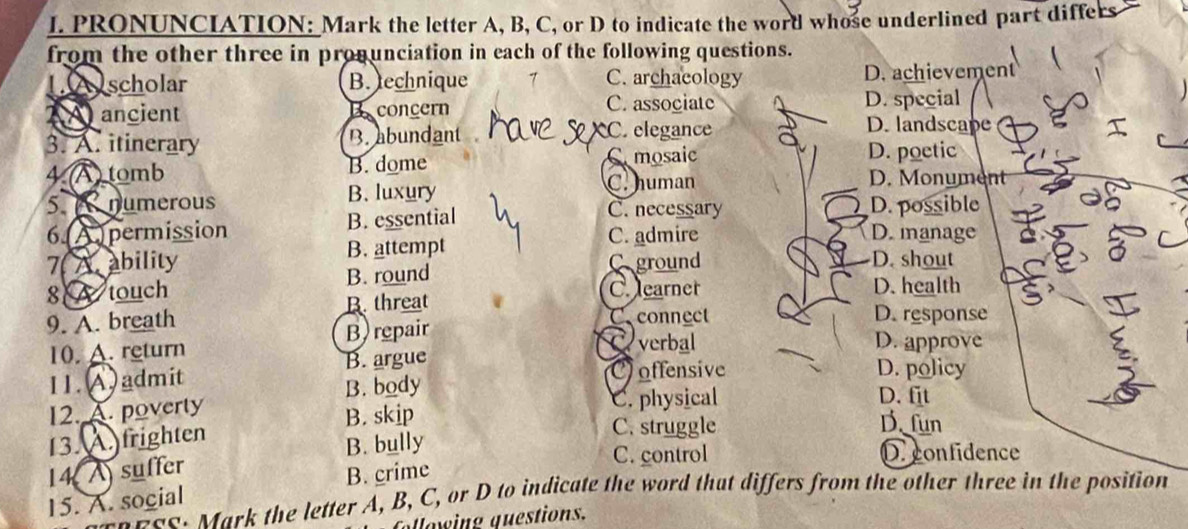 I. PRONUNCIATION: Mark the letter A, B, C, or D to indicate the word whose underlined part differs
from the other three in pronunciation in each of the following questions.
1. A. scholar B. technique C. archaeology D. achievement
2. A. ancient B. concern C. associate D. special
3. A. itinerary B. abundant C. elegance D. landscape
have sex
4. A. tomb B. dome C. mosaic D. poetic
5. A. numerous B. luxury C. human D. Monument
6. A. permission B. essential C. necessary D. possible
7. A. ability B. attempt C. admire D. manage
8. A. touch B. round C. ground D. shout
9. A. breath B. threat C. learner D. health
10. A. return B. repair C. connect D. response
11. A. admit B. argue C. verbal D. approve
12. A. poverty B. body C. offensive D. policy
13. A. frighten B. skip C. physical D. fit
14. A. suffer B. bully C. struggle D. fun
15. A. social B. crime C. control D. confidence
Mark the letter A, B, C, or D to indicate the word that differs from the other three in the position
following questions.